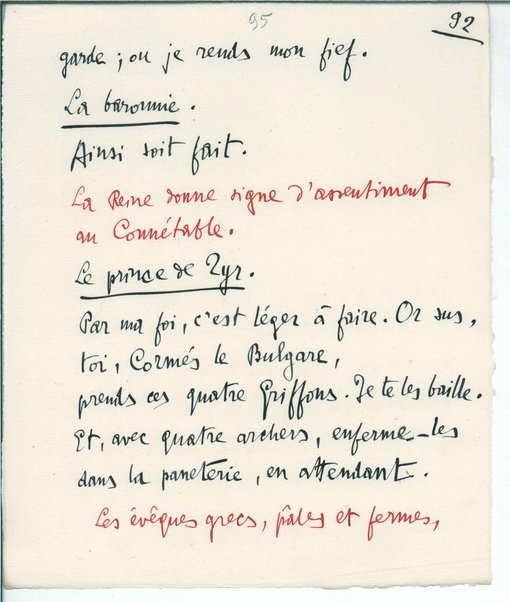 95
92
garde ; ou je rends mon fief.
La baronnie.
Ainsi soit fait.
La Reine donne signe d'assentiment
au Connétable.
Le prince de Tyr.
Par ma foi, c'est léger à faire. Or sus,
toi, Cormés le Bulgare,
prends ces quatre Griffons. Je te les baille.
Et, avec quatre archers, enferme-les
dans la paneterie, en attendant.
Les évêques grecs, pâles et fermes,